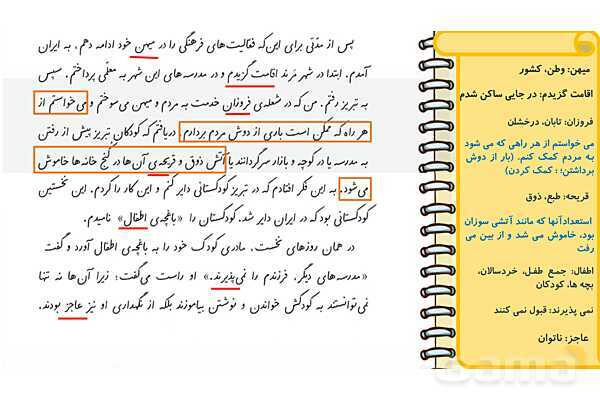 پس از مدّتی برای این‌که فعالیت‌های فرهنگی را در میهن خود ادامه دهم، به ایران
آمدم. ابتدا در شهر مَرَند اقامت گزیدم و در مدرسه‌های این شهر به معلّمی پرداختم. سپس
به تبریز رفتم. من که در شعله‌ی فروزان خدمت به مردم و میهن می‌سوختم و می‌خواستم از
هر راه که ممکن است باری از دوش مردم بردارم، دریافتم که کودکان تبریز پیش از رفتن
به مدرسه یا در کوچه و بازار سرگردانند یا آتش ذوق و قریحه‌ی آن‌ها در کُنج خانه‌ها خاموش
می‌شود. به این فکر افتادم که در تبریز کودکستانی دایر کنم و این کار را کردم. این نخستین
کودکستانی بود که در ایران دایر شد. کودکستان را «باغچه‌ی اطفال» نامیدم.
در همان روزهای نخست، مادری کودک خود را به باغچه‌ی اطفال آورد و گفت
«مدرسه‌های دیگر، فرزندم را نمی‌پذیرند.» او راست می‌گفت؛ زیرا آن‌ها نه تنها
نمی‌توانستند به کودکش خواندن و نوشتن بیاموزند بلکه از نگهداری او نیز عاجز بودند.
میهن: وطن، کشور
اقامت گزیدم: در جایی ساکن شدم
فروزان: تابان، درخشان
می خواستم از هر راهی که می شود
به مردم کمک کنم. (بار از دوش
برداشتن: کمک کردن)
قریحه: طبع، ذوق
استعدادآنها که مانند آتشی سوزان
بود، خاموش می شد و از بین می
رفت
اطفال: جمع طفل، خردسالان،
بچه ها، کودکان
نمی پذیرند: قبول نمی کنند
عاجز: ناتوان
gama